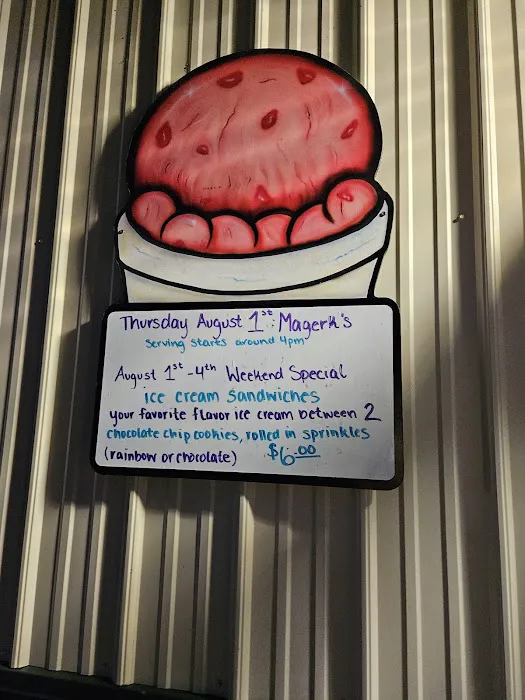 Thursday August 1st: Magerk's
Serving Starts around 4pm
August 1st-4th Weekend Special
ice cream sandwiches
your favorite flavor ice cream between 2
chocolate chip cookies, rolled in sprinkles
(rainbow or chocolate) $6.00